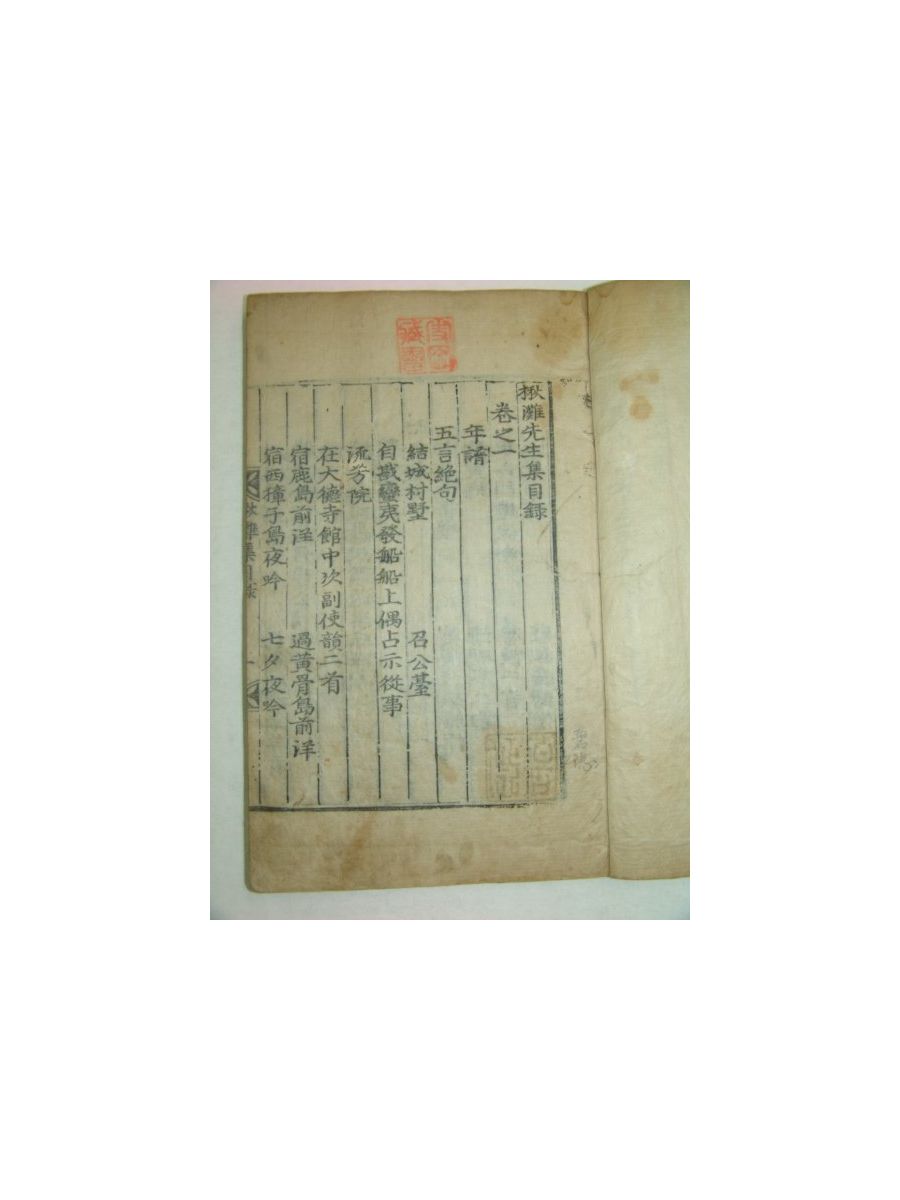 楸灘先生集目録
卷之一
年譜
五言絶句
結城村墅 召公臺
自戡蠻夷發船船上偶占示從事
流芳院
在大德寺館中次副使韻二首
宿鹿島前洋 過黃骨島前洋
宿西獐子島夜吟 七夕夜吟
楸灘集目録 一